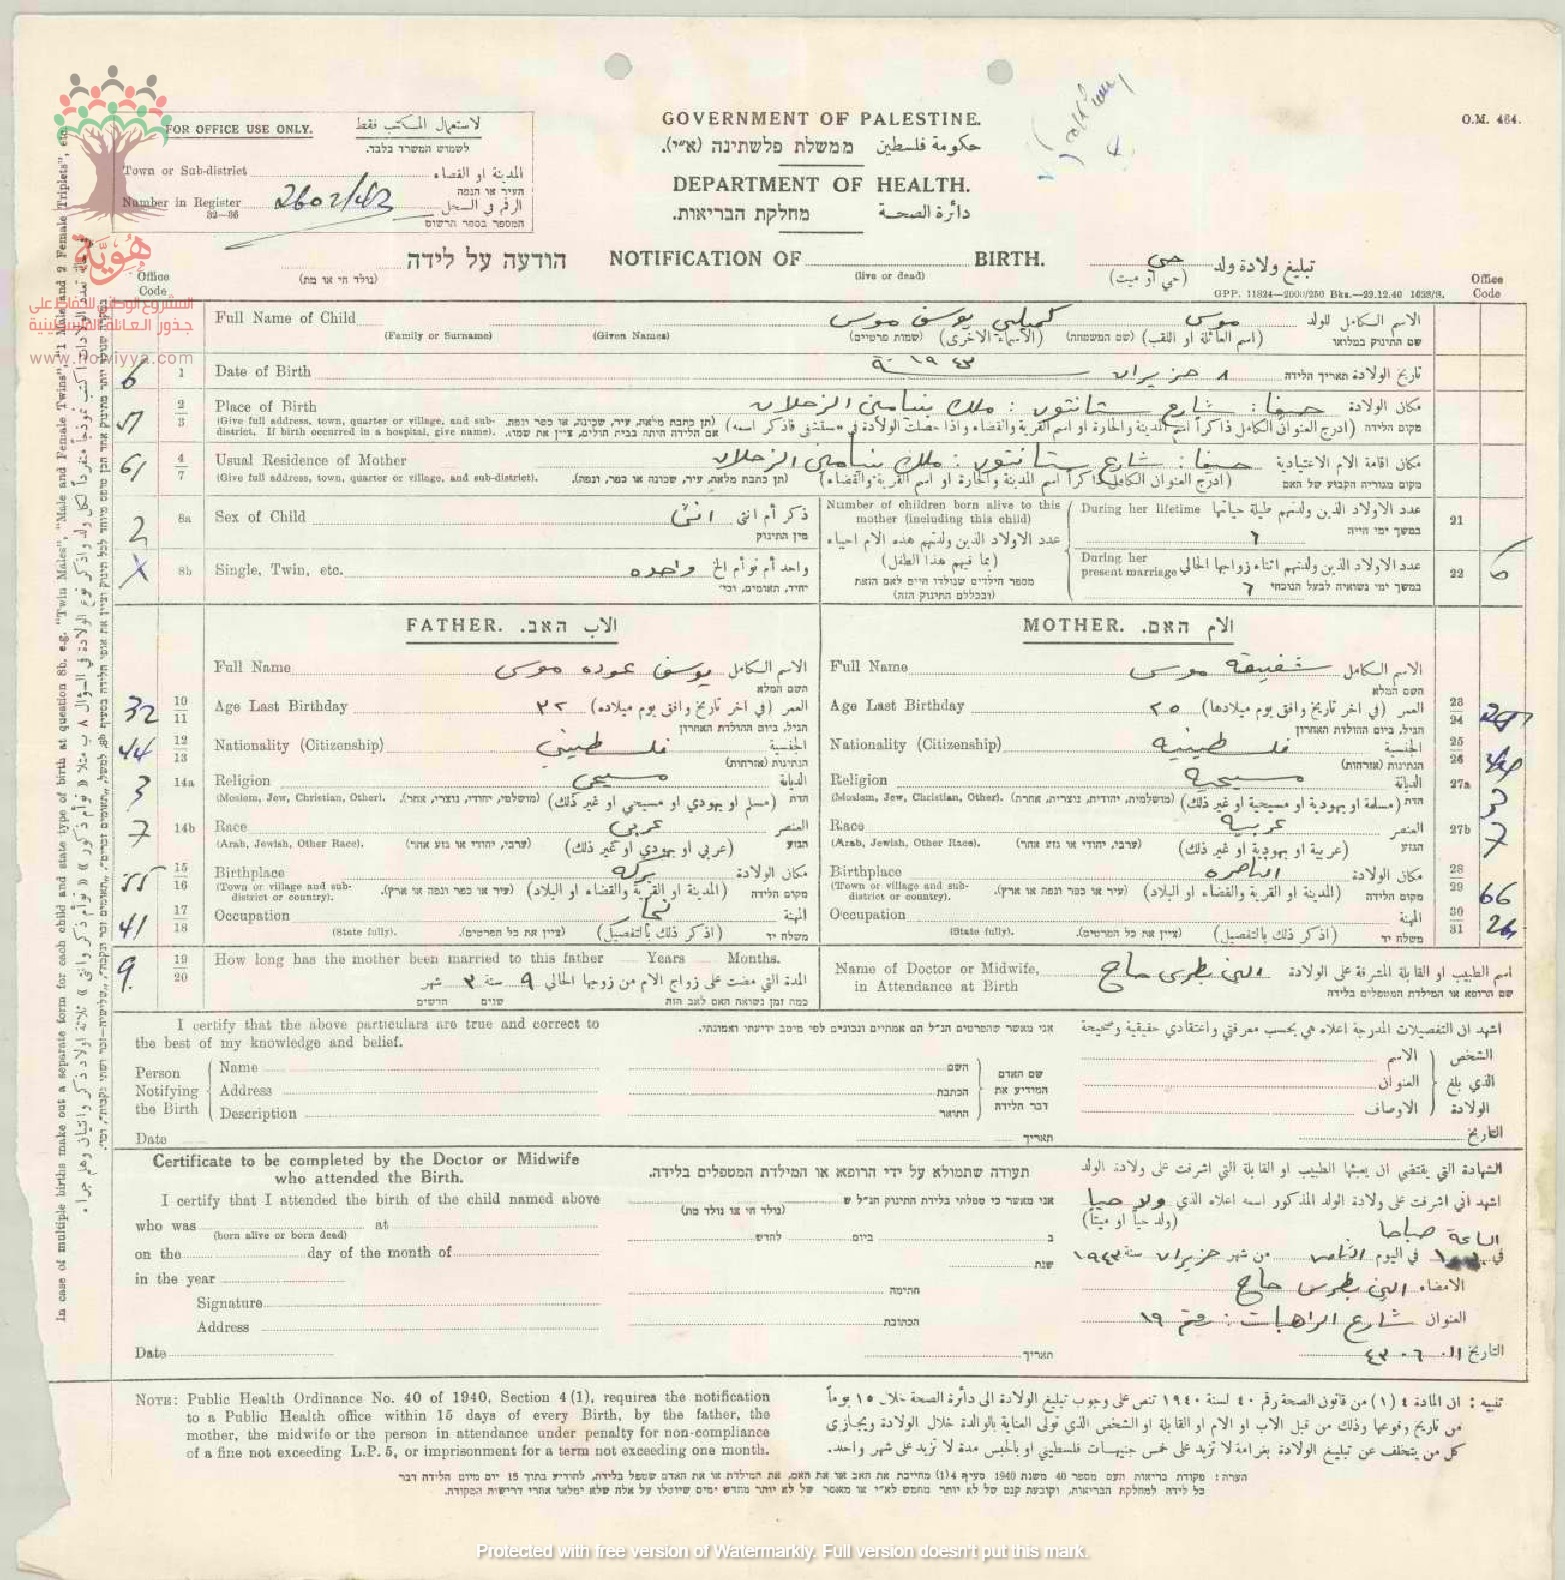 GOVERNMENT OF PALESTINE.
ממשלת פלשתינה (א״י). حكومة فلسطين
DEPARTMENT OF HEALTH.
מחלקת הבריאות. دائرة الصحة
O.M. 464.
FOR OFFICE USE ONLY. لاستعمال المكتب فقط
לשמוש המשרד בלבד.
Town or Sub-district المدينة او القضاء
העיר או הנפה
Number in Register 2602/43 الرقم في السجل
32—36 המספר בספר הרשום
הודעה על לידה NOTIFICATION OF BIRTH. حي تبليغ ولادة ولد
(נולד חי או מת) (live or dead) (حي او ميت)
GPP. 11824—2000/250 Bks.—23.12.40
Office Code
Office Code
Full Name of Child كميلي يوسف موسى موسى الاسم الكامل للولد
(Family or Surname) (Given Names) (שמות פרטיים) (الأسماء الاخرى) (שם המשפחה) (اسم العائلة او اللقب) שם התינוק במלואו
6 1 Date of Birth ٨ حزيران سنة ١٩٤٣ תאריך הלידה تاريخ الولادة
2/3 Place of Birth حيفا : شارع ستانتون : ملك بنيامين الزحلان مكان الولادة
(Give full address, town, quarter or village, and sub-district. If birth occurred in a hospital, give name). (תן כתבת מלאה, עיר, שכונה, או כפר ונפה. אם הלידה היתה בבית חולים, ציין את שמו). מקום הלידה
61 4/7 Usual Residence of Mother حيفا : شارع ستانتون : ملك بنيامين الزحلان مكان اقامة الام الاعتيادية
(Give full address, town, quarter or village, and sub-district). (תן כתבת מלאה, עיר, שכונה או כפר, ונפה). (ادرج العنوان الكامل ذاكراً اسم المدينة والحارة او اسم القرية والقضاء) מקום מגוריה הקבוע של האם
2 8a Sex of Child انثى ذكر أم انثى
מין התינוק
8b Single, Twin, etc. واحده واحد أم توأم الخ
יחיד, תאומים, וכו׳
Number of children born alive to this mother (including this child)
عدد الاولاد الذين ولدتهم هذه الام احياء (بما فيهم هذا الطفل)
מספר הילדים שנולדו חיים לאם הזאת (ובכללם התינוק הזה)
During her lifetime عدد الاولاد الذين ولدتهم طيلة حياتها 21
٦ במשך ימי חייה
During her present marriage عدد الاولاد الذين ولدتهم اثناء زواجها الحالي 22 6
٦ במשך ימי נשואיה לבעל הנוכחי
FATHER. الاب האב.
Full Name يوسف عوده موسى الاسم الكامل
השם המלא
32 10/11 Age Last Birthday ٣٢ العمر (في اخر تاريخ وافق يوم ميلاده)
הגיל, ביום ההולדת האחרון
44 12/13 Nationality (Citizenship) فلسطيني الجنسية
הנתינות (אזרחות)
3 14a Religion مسيحي الديانة
(Moslem, Jew, Christian, Other). (מושלמי, יהודי, נוצרי, אחר). (مسلم او يهودي او مسيحي او غير ذلك) הדת
7 14b Race عربي العنصر
(Arab, Jewish, Other Race). (ערבי, יהודי או גזע אחר) (عربي او يهودي او غير ذلك) הגזע
55 15/16 Birthplace مكان الولادة
(Town or village and sub-district or country). (עיר או כפר ונפה או ארץ). (المدينة او القرية والقضاء او البلاد) מקום הלידה
41 17/18 Occupation نجار المهنة
(State fully). (ציין את כל הפרטים). (اذكر ذلك بالتفصيل) משלח יד
9 19/20 How long has the mother been married to this father Years Months.
المدة التي مضت على زواج الام من زوجها الحالي ٩ سنة ٣ شهر
כמה זמן נשואה האם לאב הזה שנים חדשים
MOTHER. الام האם.
Full Name شفيقة موسى الاسم الكامل
השם המלא
Age Last Birthday ٢٥ العمر (في اخر تاريخ وافق يوم ميلادها) 23/24
הגיל, ביום ההולדת האחרון
Nationality (Citizenship) فلسطينيه الجنسية 25/26
הנתינות (אזרחות)
Religion مسيحية الديانة 27a
(Moslem, Jew, Christian, Other). (מושלמית, יהודית, נוצרית, אחרת) (مسلمة او يهودية او مسيحية او غير ذلك) הדת
Race عربية العنصر 27b 7
(Arab, Jewish, Other Race). (ערבי, יהודי או גזע אחר) (عربية او يهودية او غير ذلك) הגזע
Birthplace الناصره مكان الولادة 28/29 66
(Town or village and sub-district or country). (עיר או כפר ונפה או ארץ). (المدينة او القرية والقضاء او البلاد) מקום הלידה
Occupation المهنة 30/31
(State fully). (ציין את כל הפרטים). (اذكر ذلك بالتفصيل) משלח יד
Name of Doctor or Midwife, in Attendance at Birth الين بطرس حاج اسم الطبيب او القابلة المشرفة على الولادة
שם הרופא או המילדת המטפלים בלידה
I certify that the above particulars are true and correct to the best of my knowledge and belief.
אני מאשר שהפרטים הנ״ל הם אמתיים ונכונים לפי מיטב ידיעתי ואמונתי.
اشهد ان التفصيلات المدرجة اعلاه هي بحسب معرفتي واعتقادي حقيقية وصحيحة
Person Notifying the Birth
Name השם الاسم
Address הכתבת العنوان
Description התואר الاوصاف
שם האדם המודיע את דבר הלידה
الشخص الذي بلغ الولادة
Date תאריך التاريخ
Certificate to be completed by the Doctor or Midwife who attended the Birth.
תעודה שתמולא על ידי הרופא או המילדת המטפלים בלידה.
الشهادة التي يقتضي ان يعبئها الطبيب او القابلة التي اشرفت على ولادة الولد
I certify that I attended the birth of the child named above
אני מאשר כי טפלתי בלידת התינוק הנ״ל ש
(נולד חי או נולד מת)
اشهد اني اشرفت على ولادة الولد المذكور اسمه اعلاه الذي ولد حيا
(ولد حياً او ميتاً)
who was at
(born alive or born dead)
الساعة صباحا
on the day of the month of
ב ביום לחדש
في اليوم الثامن من شهر حزيران سنة ١٩٤٣
in the year שנת
Signature חתימה الامضاء الين بطرس حاج
Address הכתובת العنوان شارع الراهبات : رقم ١٩
Date תאריך التاريخ ١١.٦.٤٣
NOTE: Public Health Ordinance No. 40 of 1940, Section 4 (1), requires the notification
to a Public Health office within 15 days of every Birth, by the father, the
mother, the midwife or the person in attendance under penalty for non-compliance
of a fine not exceeding L.P. 5, or imprisonment for a term not exceeding one month.
تنبيه : ان المادة ٤ (١) من قانون الصحة رقم ٤٠ لسنة ١٩٤٠ تنص على وجوب تبليغ الولادة الى دائرة الصحة خلال ١٥ يوماً
من تاريخ وقوعها وذلك من قبل الاب او الام او القابلة او الشخص الذي تولى العناية بالوالدة خلال الولادة ويجازى
كل من يتخلف عن تبليغ الولادة بغرامة لا تزيد على خمس جنيهات فلسطيني او بالحبس مدة لا تزيد على شهر واحد.
הערה: פקודת בריאות העם מספר 40 משנת 1940 סעיף 4(1) מחייבת את האב או את האם, את המילדת או את האדם שטפל בלידה, להודיע בתוך 15 יום מיום הלידה דבר
כל לידה למחלקת הבריאות, וקובעת קנס של לא יותר מחמש לא״י או מאסר של לא יותר מחדש ימים שיוטלו על אלה שלא ימלאו אחרי דרישות הפקודה.
In case of multiple births make out a separate form for each child and state type of birth at question 8b. e.g. "Twin Males", "Male and Female Twins", "1 Male and 2 Female Triplets", etc.
هُوِيَّة
المشروع الوطني للحفاظ على
جذور العائلة الفلسطينية
www.howiyya.com
Protected with free version of Watermarkly. Full version doesn't put this mark.